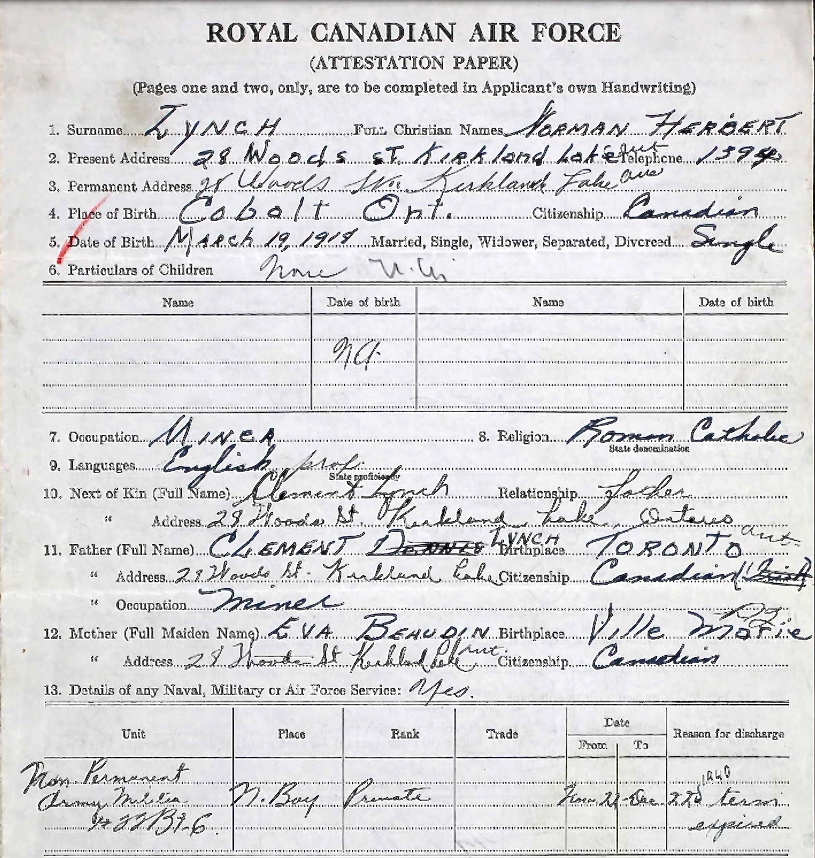 ROYAL CANADIAN AIR FORCE
(ATTESTATION PAPER)
(Pages one and two, only, are to be completed in Applicant's own Handwriting)
1. Surname LYNCH FULL Christian Names NORMAN HERBERT
2. Present Address 28 Woods st Kirkland Lake Ont Telephone 1394
3. Permanent Address 28 Woods Kirkland Lake Ont
4. Place of Birth Cobolt Ont. Citizenship Canadian
5. Date of Birth MARCH 19, 1919 Married, Single, Widower, Separated, Divorced Single
6. Particulars of Children None
Name Date of birth Name Date of birth
NA
7. Occupation MINER 8. Religion Roman Catholic
State denomination
9. Languages English prof.
State proficiency
10. Next of Kin (Full Name) Clement Lynch Relationship father
" Address 28 Woods St. Kirkland Lake, Ontario
11. Father (Full Name) CLEMENT DENNIS LYNCH Birthplace TORONTO Ont.
" Address 28 Woods St. Kirkland Lake Citizenship Canadian (Irish)
" Occupation Miner
12. Mother (Full Maiden Name) EVA BEAUDIN Birthplace Ville Marie
" Address 28 Woods St Kirkland Lake Ont. Citizenship Canadian
13. Details of any Naval, Military or Air Force Service: Yes.
Unit Place Rank Trade Date Reason for discharge
From To
Non Permanent
Army Militia N. Bay Private 22 Dec 22 1940 term
expired